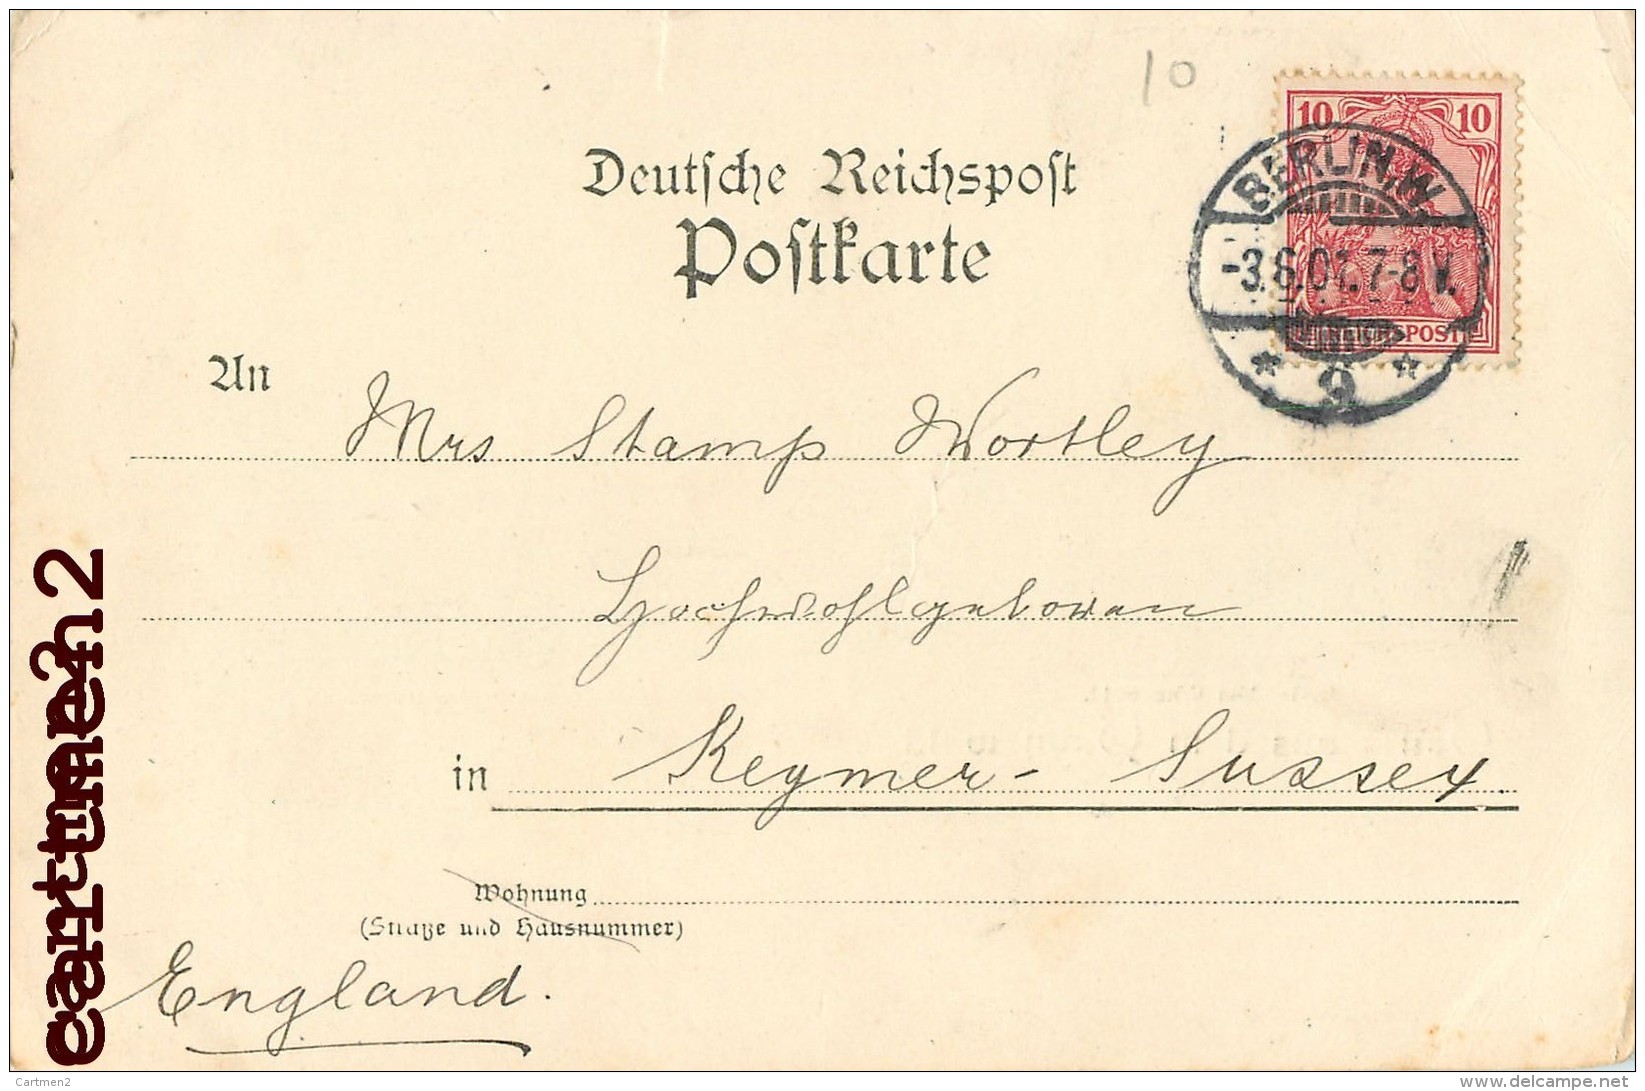 10
10 10
REICHSPOST
BERLIN.W
-3.6.01.7-8V.
* 9 *
Deutsche Reichspost
Postkarte
An
Mrs Stamp Wortley
Hochwohlgeboren
in Keymer - Sussex.
Wohnung
(Straße und Hausnummer)
England.
cartmen2
Cartmen2
www.delcampe.net